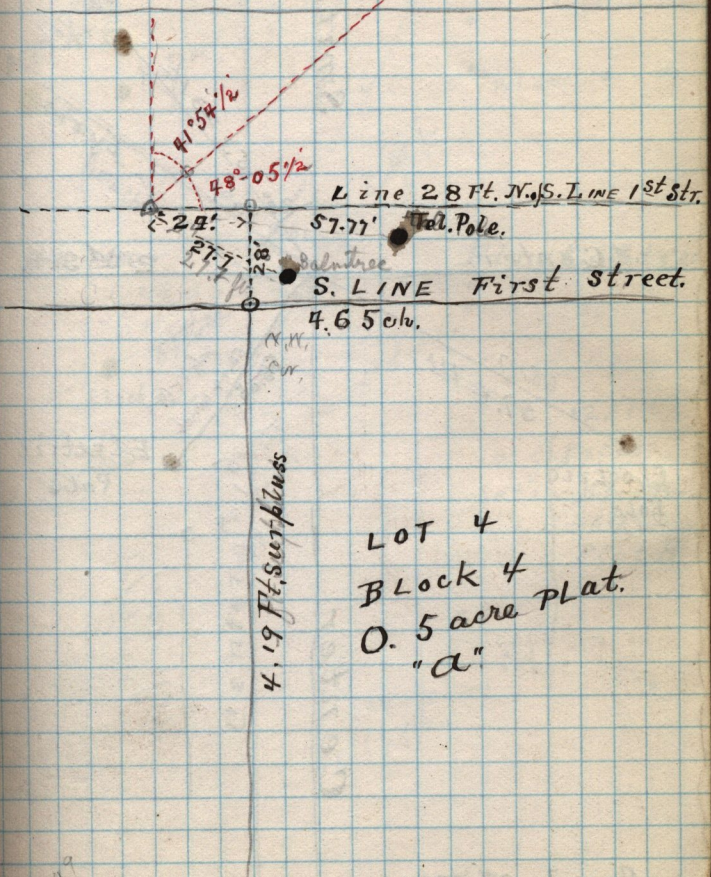 41°54½
48°-05½
Line 28 Ft. N. of S. LINE 1st Str.
24'
57.77' Tel. Pole.
27.7
28'
S. LINE First Street.
4.65 ch.
N.W.
4.19 Ft. surpluss
LOT 4
BLock 4
O. 5 acre PLat.
"a"